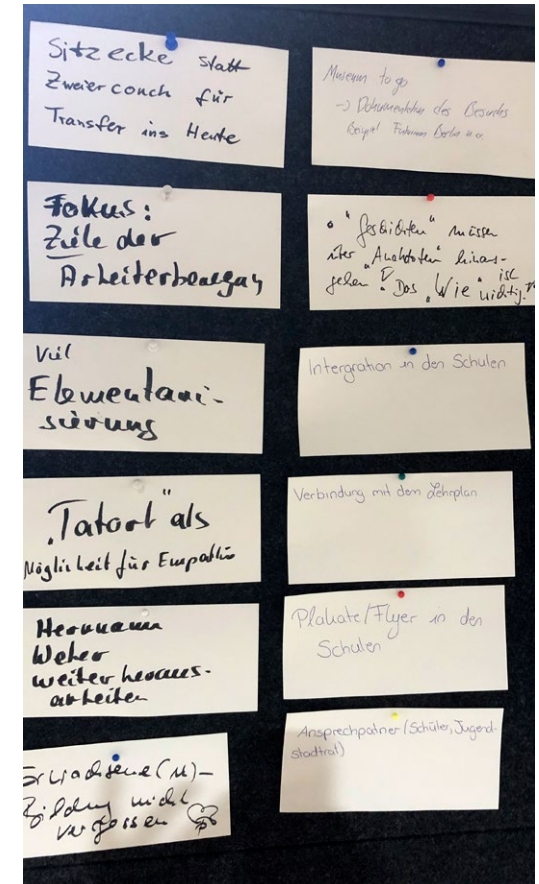 Sitzecke statt
Zweiercouch für
Transfer ins Heute
Fokus:
Ziele der
Arbeiterbewegung
Viel
Elementari-
sierung
„Tatort“ als
Möglichkeit für Empathie
Hermann
Weber
weiter heraus-
arbeiten
Erwachsene(n)-
Bildung nicht
vergessen
Museum to go
-> Dokumentation des Besuches
Beispiel Futurium Berlin u.a.
• "Geschichten" müssen
über "Anekdoten" hinaus-
gehen! Das „Wie“ ist
wichtig!
Intergration in den Schulen
Verbindung mit dem Lehrplan
Plakate/Flyer in den
Schulen
Ansprechpatner (Schüler, Jugend-
stadtrat)